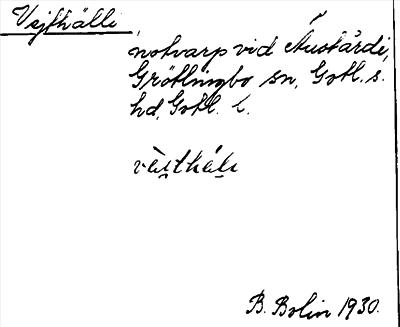 Vejthälli,
notvarp vid Austårdi,
Grötlingbo sn, Gotl. s.
hd, Gotl. l.
B. Bolin 1930.